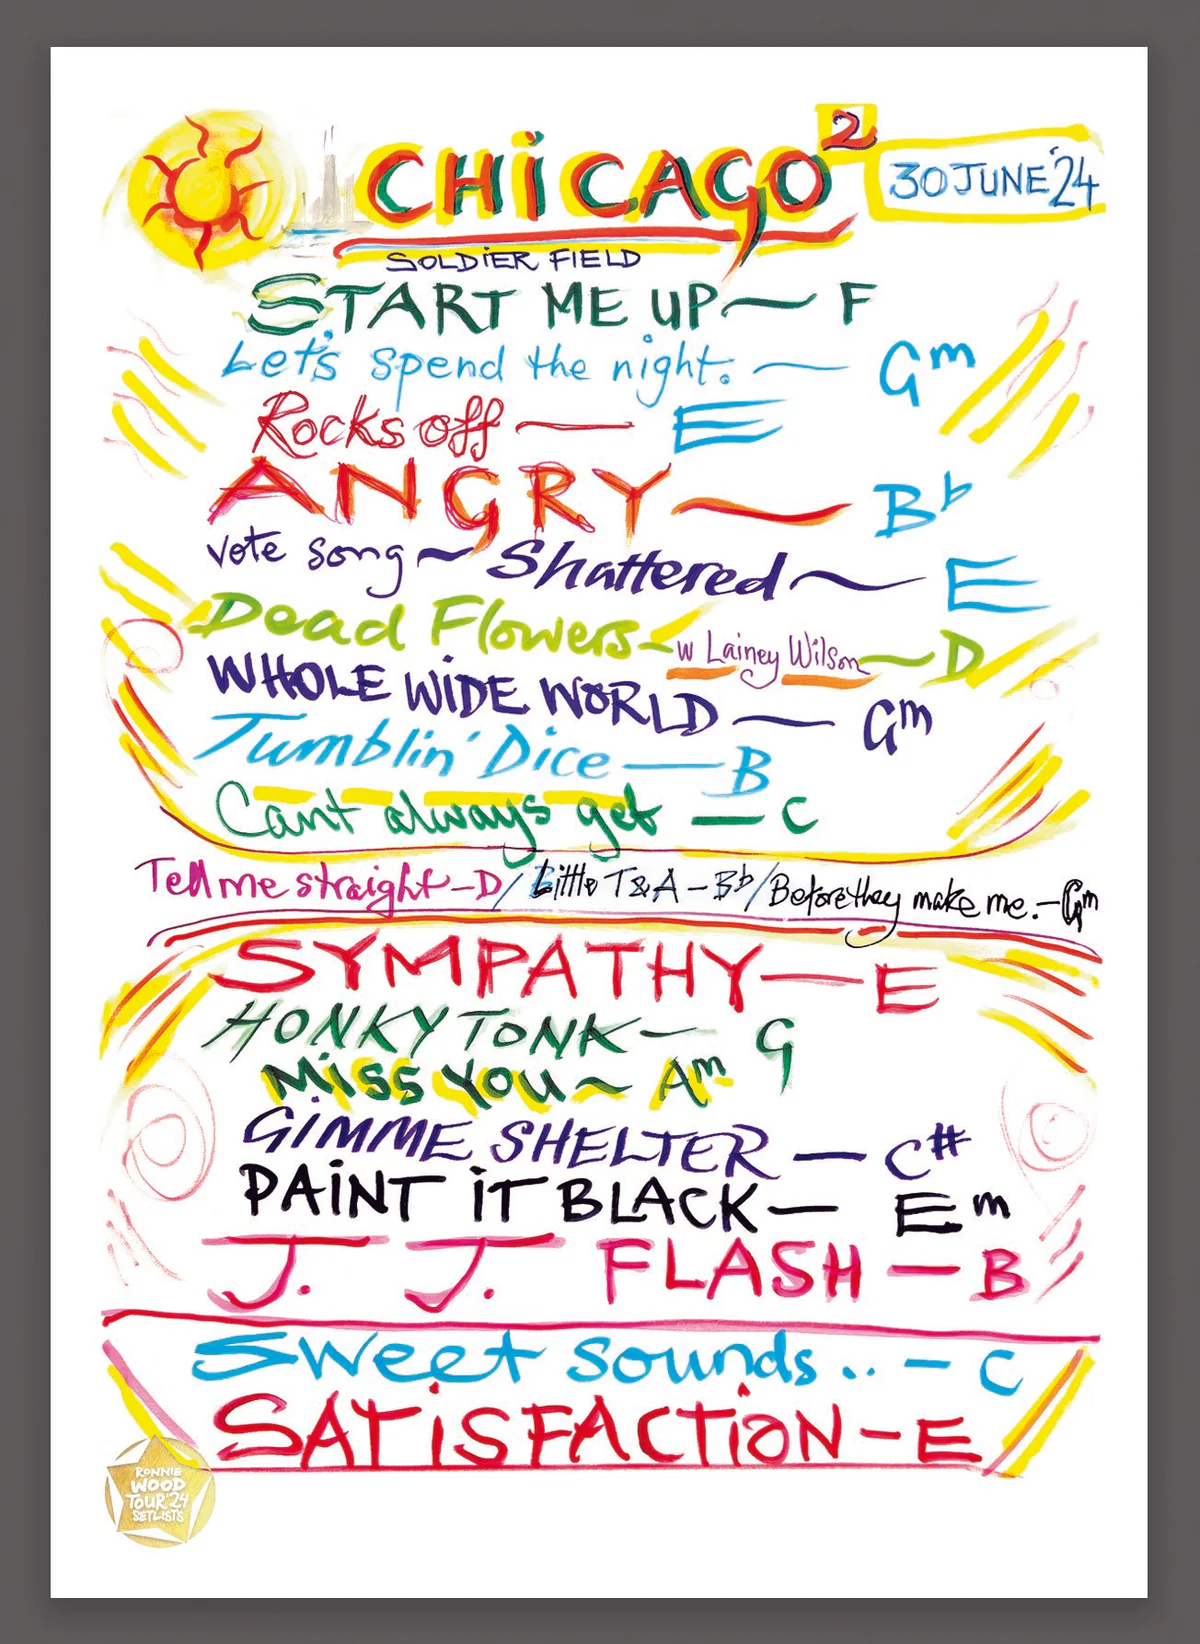 CHiCAGO²
30 JUNE '24
SOLDiER FiELD
START ME UP ~ F
Let's spend the night. ~ Gm
Rocks off — E
ANGRY ~ B♭
vote song ~ Shattered ~ E
Dead Flowers - w Lainey Wilson ~ D
WHOLE WiDE WORLD — Gm
Tumblin' Dice — B
Cant always get — C
Tell me straight - D / Little T & A - B♭ / Before they make me. - Gm
SYMPATHY — E
HONKY TONK — G
MiSS YOU ~ Am
GiMME SHELTER — C#
PAiNT iT BLACK — Em
J. J. FLASH — B
Sweet sounds .. — C
SATiSFACTiON - E
RONNIE
WOOD
TOUR '24
SETLISTS